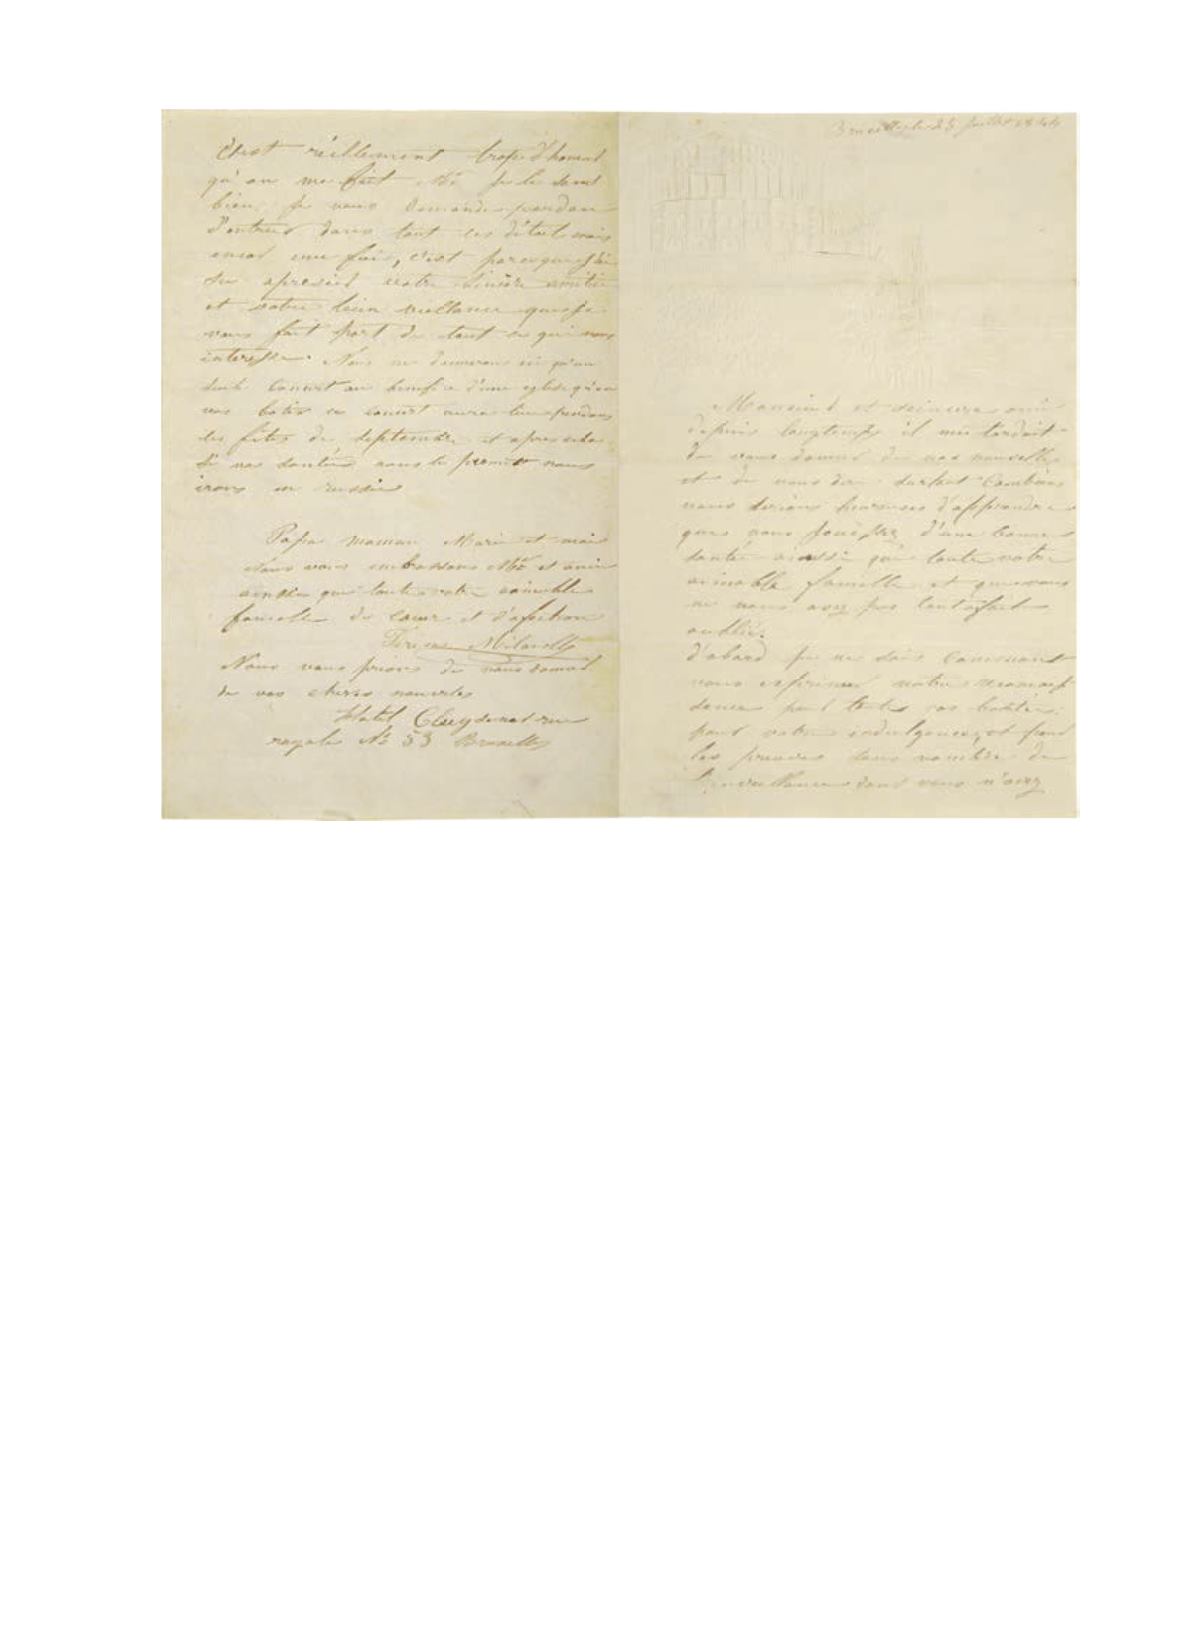 C'est réellement trop d'honeur
qu'on me fait Mr je le sent
bien, je vous demande pardon
d'entrer dans tout ces détail mais
encor une fois, c'est parceque j'ai
su apresier votre sincère amitié
et votre bien veillance que je
vous fait part de tout ce qui nous
interesse. Nous ne donnerons ici qu'un
seule concert au benefice d'une eglise qu'on
vas batir ce concert aura lieu pendant
les fêtes de septembre et apres cela
si nos santés nous le permet nous
irons en russie
Papa maman Maria et moi
nous vous embrassons Mr et ami
ainsie que toute votre aimable
famille de cœur et d'afection
Teresa Milanollo
Nous vous prions de nous donner
de vos cheres nouvelles
Hotel rue
royale No 53 Bruxelles
Bruxelles le juillet
Monsieur et seincere ami
depuis longtemps il me tardait
de vous donner de nos nouvelles
et de vous dir surtout combien
nous serions heureuses d'apprendre
que vous jouissez d'une bonne
santé ainssi que toute votre
aimable famille et que vous
ne nous avez pas tout afait
oublié.
d'abord je ne sais comment
vous exprimer notre reconais
sance pour toutes vos bontés
pour votre indulgence, et pour
les preuves sans nombre de
bienveillance dont vous n'avez